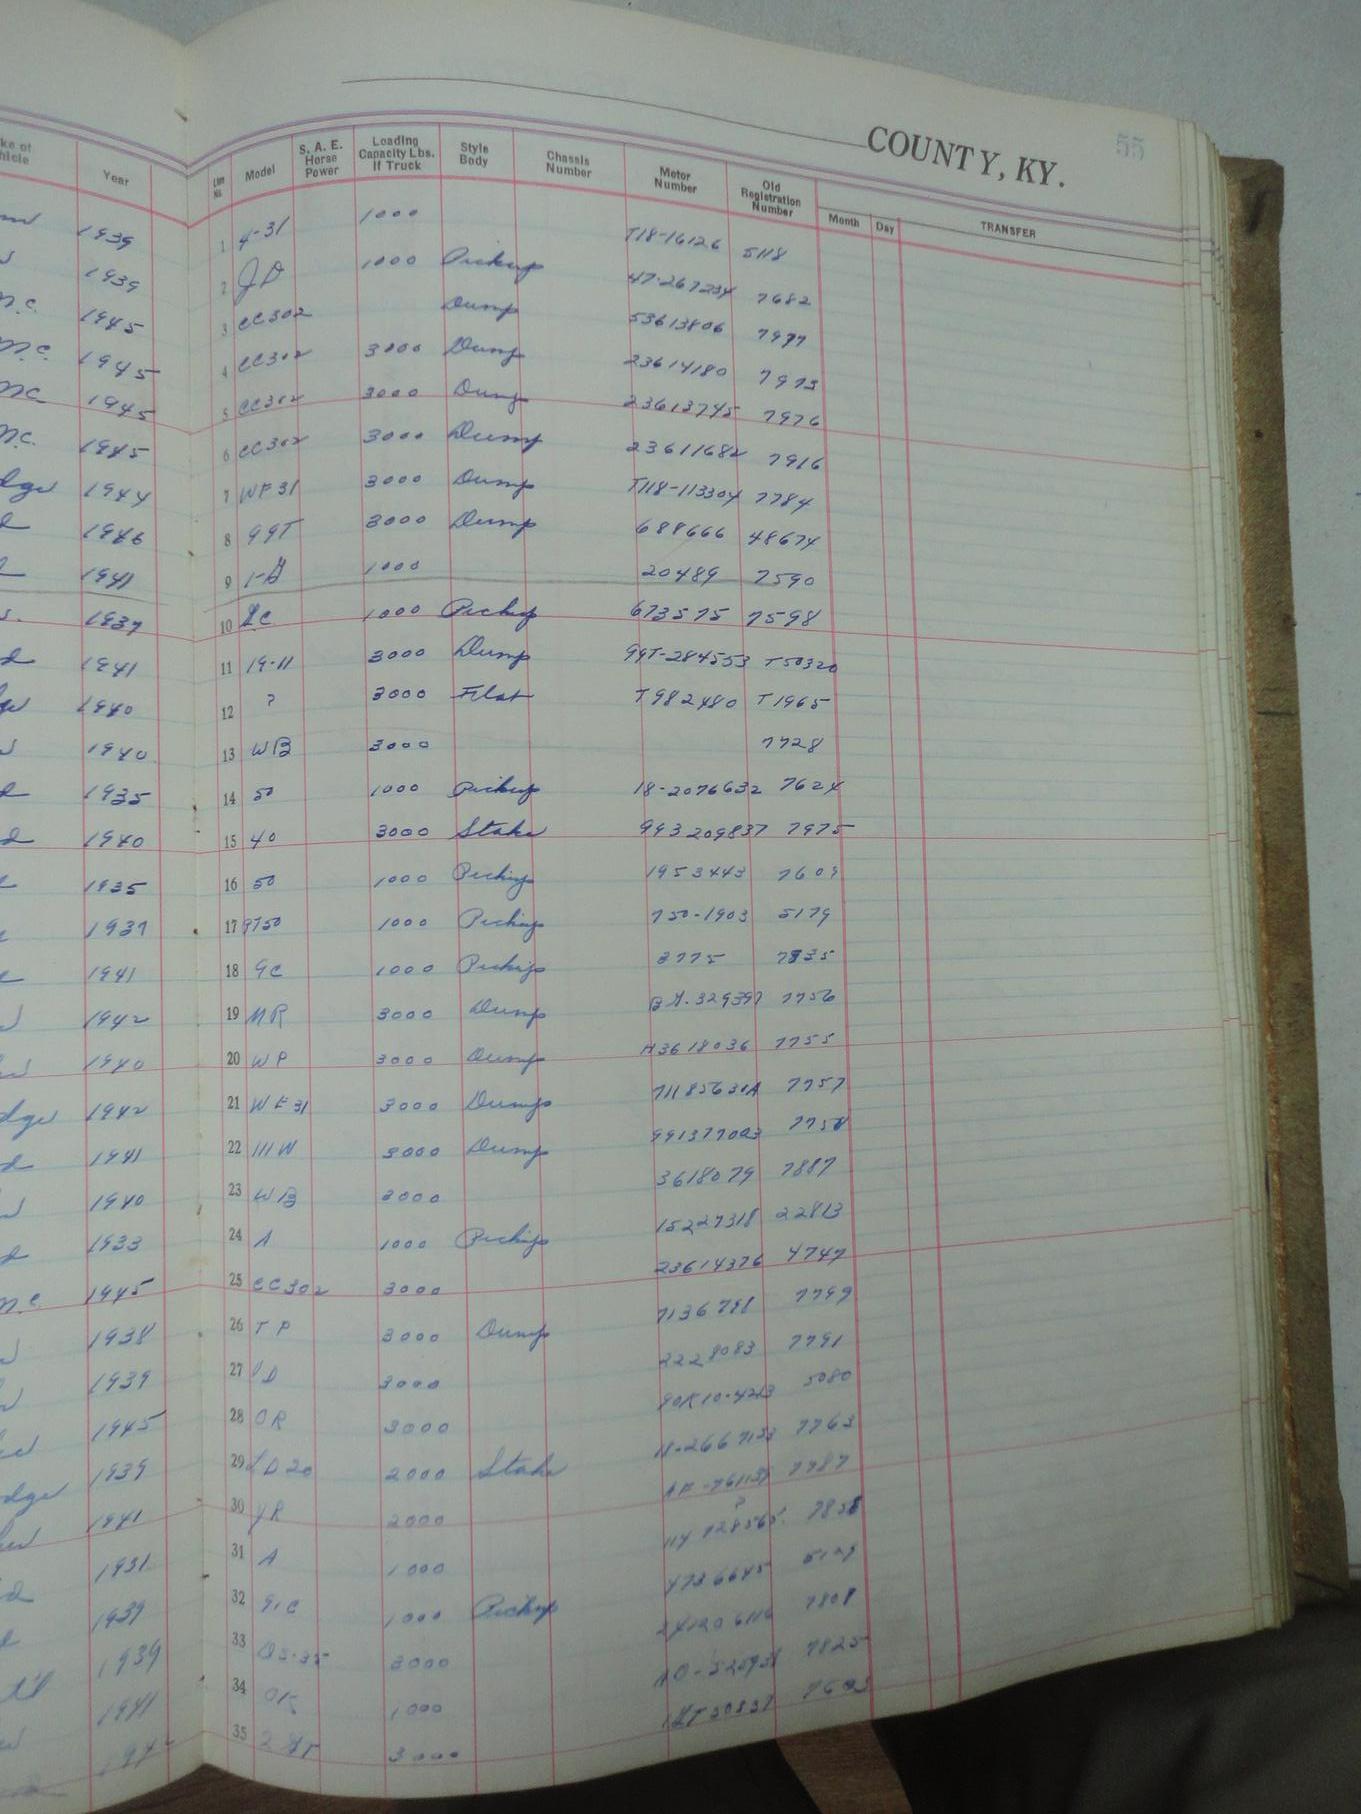 COUNTY, KY. 55
Year Line No. Model S. A. E. Horse Power Loading Capacity Lbs. If Truck Style Body Chassis Number Motor Number Old Registration Number Month Day TRANSFER
1939 1 4-31 1000 T18-16126 5118
1939 2 JD 1000 Pickup 47-267234 7682
1945 3 CC302 Dump 53613806 7977
1945 4 CC302 3000 Dump 23614180 7975
1945 5 CC302 3000 Dump 23613745 7976
1945 6 CC302 3000 Dump 23611682 7916
1944 7 WF31 3000 Dump T118-113304 7784
1946 8 99T 3000 Dump 688666 48674
1941 9 1000 20489 7590
1937 10 1000 Pickup 673575 7598
1941 11 19-11 3000 Dump 99T-284553 T50320
1940 12 ? 3000 Flat T982480 T1965
1940 13 WB 3000 7728
1935 14 50 1000 Pickup 18-2076632 7624
1940 15 40 3000 Stake 993209837 7975
1935 16 50 1000 Pickup 1953443 7609
1937 17 1000 Pickup 750-1903 5179
1941 18 9C 1000 Pickup 3775 7835
1942 19 MR 3000 Dump 7756
1940 20 WP 3000 Dump H3618036 7755
1942 21 WF31 3000 Dump 7757
1941 22 111W 3000 Dump 7758
1940 23 WB 3000 3618079 7887
1933 24 A 1000 Pickup 15227318 22813
1945 25 CC302 3000 23614376 4747
1938 26 TP 3000 Dump 7136798 7799
1939 27 VD 3000 2228083 7791
1945 28 OR 3000 5080
1939 29 2000 Stake 7763
1941 30 YR 2000 7787
1931 31 A 1000 ?
1939 32 91C 1000 Pickup
1939 33 3000 7808
1941 34 1000 7825
35 3000